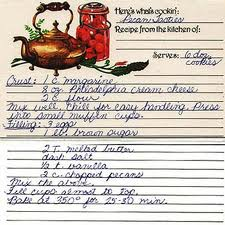 Here's what's cookin': Pecan Tasties
Recipe from the kitchen of:
Serves: 6 doz. cookies
Crust: 1 c. margarine
8 oz. Philadelphia cream cheese
2 c. flour
Mix well. Chill for easy handling. Press
into small muffin cups.
Filling: 3 eggs
1 lb. brown sugar
2 T. melted butter
dash salt
½ t. vanilla
2 c. chopped pecans
Mix the above.
Fill cups almost to top.
Bake at 350° for 25-30 min.